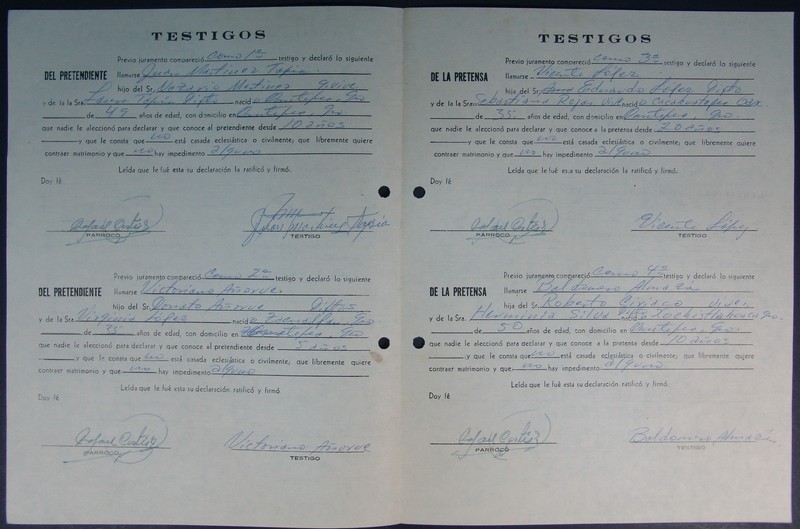 TESTIGOS
Previo juramento compareció como 1º testigo y declaró lo siguiente
DEL PRETENDIENTE llamarse Juan Martinez Tapia
hijo del Sr. Nazario Martinez q. vive
y de la Sra. Tapia Difto nació Gro
de 49 años de edad, con domicilio en Gro
que nadie le aleccionó para declarar y que conoce al pretendiente desde 10 años
y que le consta que no está casada eclesiástica o civilmente; que libremente quiere
contraer matrimonio y que no hay impedimento alguno
Leída que le fué esta su declaración la ratificó y firmó.
Doy fé
Rafael Cortés
PARROCO
Juan Martinez Tapia
TESTIGO
Previo juramento compareció como 2º testigo y declaró lo siguiente
DEL PRETENDIENTE llamarse Victoriano Añorve
hijo del Sr. Donato Añorve Diftos
y de la Sra. Virginia López nació Gro
de 35 años de edad, con domicilio en Gro
que nadie le aleccionó para declarar y que conoce al pretendiente desde 5 años
y que le consta que no está casada eclesiástica o civilmente; que libremente quiere
contraer matrimonio y que no hay impedimento alguno
Leída que le fué esta su declaración ratificó y firmó.
Doy fé
Rafael Cortés
PARROCO
Victoriano Añorve
TESTIGO
TESTIGOS
Previo juramento compareció como 3º testigo y declaró lo siguiente
DE LA PRETENSA llamarse Vicente López
hijo del Sr. Eduardo López Difto
y de la Sra. Sebastiana Rojas nació
de 35 años de edad, con domicilio en Gro.
que nadie le aleccionó para declarar y que conoce a la pretensa desde 20 años
y que le consta que no está casada eclesiástica o civilmente; que libremente quiere
contraer matrimonio y que no hay impedimento alguno
Leída que le fué esta su declaración la ratificó y firmó.
Doy fé
Rafael Cortés
PARROCO
Vicente López
TESTIGO
Previo juramento compareció como 4º testigo y declaró lo siguiente
DE LA PRETENSA llamarse Baldomero
hija del Sr. Roberto viven
y de la Sra. Herminia Silva Gro.
de 50 años de edad, con domicilio en Gro.
que nadie le aleccionó para declarar y que conoce a la pretensa desde 10 años
y que le consta que no está casada eclesiástica o civilmente; que libremente quiere
contraer matrimonio y que no hay impedimento alguno
Leída que le fué esta su declaración ratificó y firmó.
Doy fé
Rafael Cortés
PARROCO
Baldomero
TESTIGO